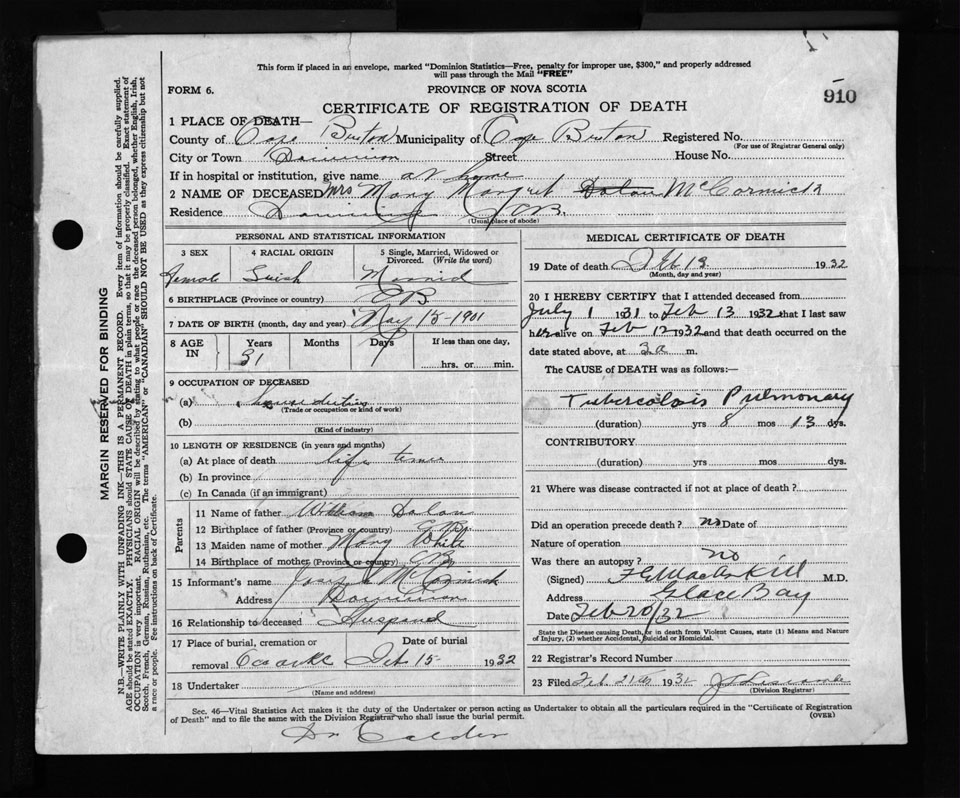 This form if placed in an envelope, marked "Dominion Statistics—Free, penalty for improper use, $300," and properly addressed
will pass through the Mail "FREE"
FORM 6. PROVINCE OF NOVA SCOTIA
910
CERTIFICATE OF REGISTRATION OF DEATH
1 PLACE OF DEATH—
County of Cape Breton Municipality of Cape Breton Registered No.
(For use of Registrar General only)
City or Town Dominion Street House No.
If in hospital or institution, give name at home
2 NAME OF DECEASED Mrs Mary Margret Dolan McCormick
Residence Dominion CB.
(Usual place of abode)
PERSONAL AND STATISTICAL INFORMATION
3 SEX 4 RACIAL ORIGIN 5 Single, Married, Widowed or
Divorced. (Write the word)
Female Married
6 BIRTHPLACE (Province or country) CB
7 DATE OF BIRTH (month, day and year) May 15-1901
8 AGE IN Years Months Days If less than one day,
31 hrs. or min.
9 OCCUPATION OF DECEASED
(a) house duties
(Trade or occupation or kind of work)
(b)
(Kind of industry)
10 LENGTH OF RESIDENCE (in years and months)
(a) At place of death life time
(b) In province
(c) In Canada (if an immigrant)
Parents
11 Name of father William Dolan
12 Birthplace of father (Province or country) C.B.
13 Maiden name of mother Mary White
14 Birthplace of mother (Province or country) C.B.
15 Informant's name McCormick
Address Dominion
16 Relationship to deceased Husband
17 Place of burial, cremation or Date of burial
removal Feb 15 1932
18 Undertaker
(Name and address)
MEDICAL CERTIFICATE OF DEATH
19 Date of death Feb 13 1932
(Month, day and year)
20 I HEREBY CERTIFY that I attended deceased from
July 1 1931 to Feb 13 1932 that I last saw
her alive on Feb 12 1932 and that death occurred on
date stated above, at 3 a m.
The CAUSE of DEATH was as follows:—
Tuberculosis Pulmonary
(duration) yrs 8 mos 13 dys.
CONTRIBUTORY
(duration) yrs mos dys.
21 Where was disease contracted if not at place of death?
Did an operation precede death? no Date of
Nature of operation
Was there an autopsy? no
(Signed) M.D.
Address Glace Bay
Date Feb 20/32
State the Disease causing Death, or in death from Violent Causes, state (1) Means and Nature
of Injury, (2) whether Accidental, Suicidal or Homicidal.
22 Registrar's Record Number
23 Filed Feb 21st 1932
(Division Registrar)
Sec. 46—Vital Statistics Act makes it the duty of the Undertaker or person acting as Undertaker to obtain all the particulars required in the "Certificate of Registration
of Death" and to file the same with the Division Registrar who shall issue the burial permit. (OVER)
Dr Calder
MARGIN RESERVED FOR BINDING
N.B.—WRITE PLAINLY WITH UNFADING INK—THIS IS A PERMANENT RECORD. Every item of information should be carefully supplied.
AGE should be stated EXACTLY. PHYSICIANS should STATE CAUSE OF DEATH in plain terms, so that it may be properly classified. Exact statement of
OCCUPATION is very important. RACIAL ORIGIN will be described by stating to what people or race the deceased person belonged, whether English, Irish,
Scotch, French, German, Russian, Ruthenian, etc. The terms "AMERICAN" or "CANADIAN" SHOULD NOT BE USED as they express citizenship but not
a race or people. Fee instructions on back of Certificate.